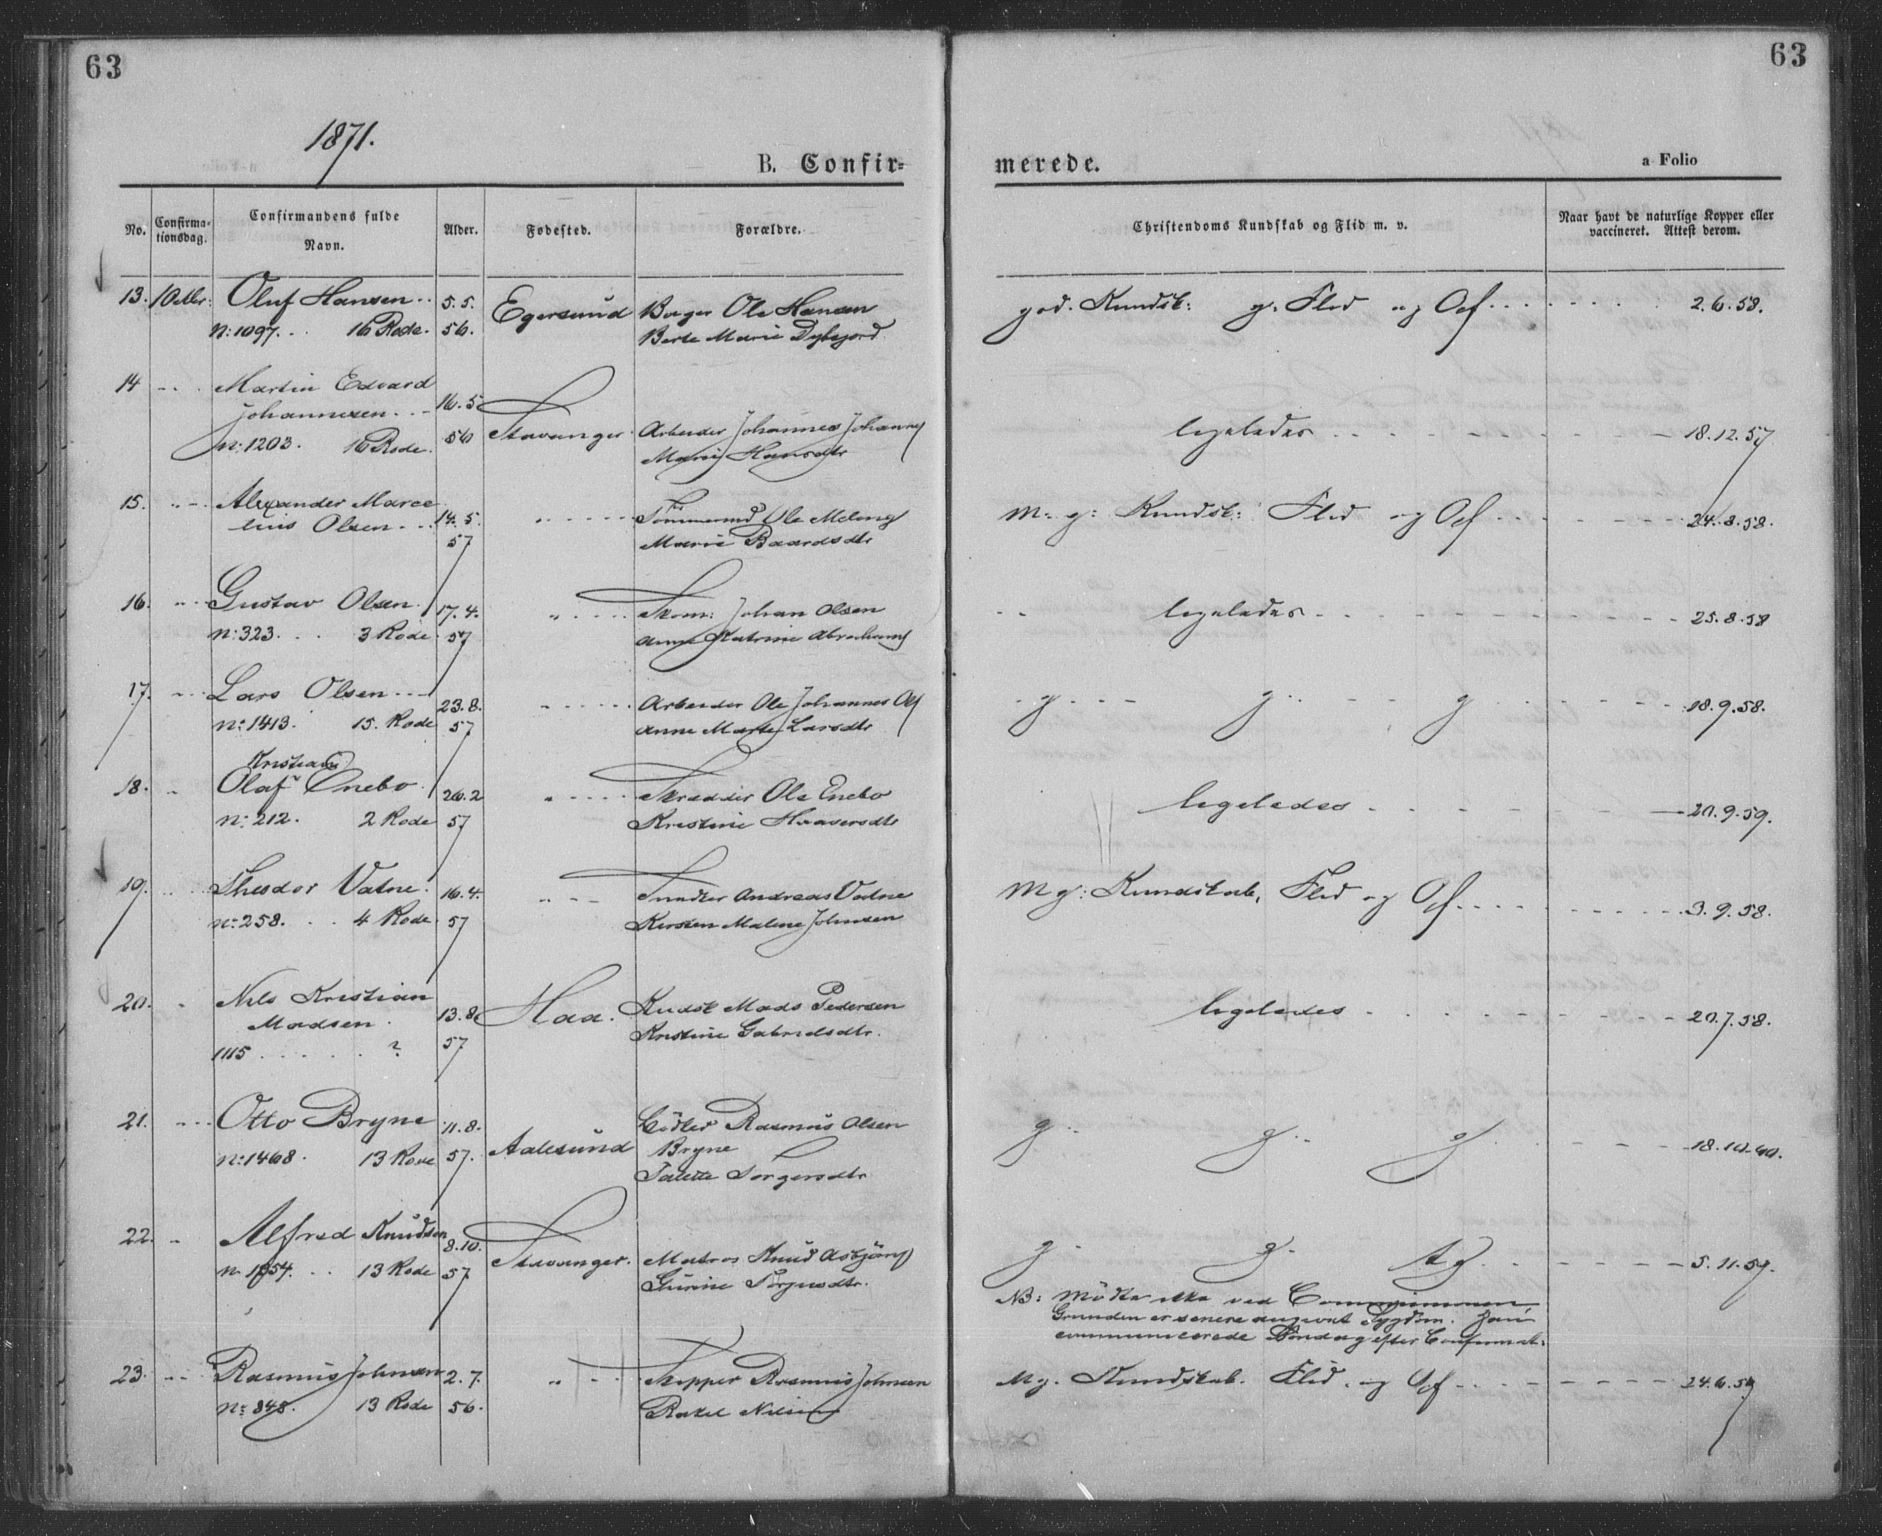 63
63
1871.
B. Confir-
merede.
a Folio
No.
Confirma-
tionsdag.
Confirmandens fulde
Navn.
Alder.
Fødested.
Forældre.
Christendoms Kundskab og Flid m. v.
Naar havt de naturlige Kopper eller
vaccineret. Attest derom.
13. Oluf Hansen 5.5. Egersund Borger Ole Hansen god. Kundsk: g. Flid og Opf 2.6.58.
N: 1097. 16 Rode. 56. Berte Marie
14 Martin Edvard
Johannesen 16.5 Stavanger Arbeider Johannes ligeledes 18.12.57
N: 1203. 16 Rode. 56 Hansdtr
15. Alexander Marce
lius Olsen 14.5. " Ole M. g: Kundsk: Flid og Opf 24.8.58.
57 Marie Baardsdtr
16. Gustav Olsen 17.4. " Skom: Johan Olsen ligeledes 25.8.58
N: 323. 3 Rode 57 Anne Katrine
17. Lars Olsen 23.8. " Arbeider Ole Johannes g g g 18.9.58.
N: 1413. 15. Rode 57 Anne Larsdtr
Kristian
18. Olaf Enebo 26.2 " Skredder Ole Enebo ligeledes 20.9.59.
N: 212. 2 Rode 57 Kristine
19. Theodor Vatne. 16.4. " Andreas Vatne M g: Kundskab, Flid og Opf 3.9.58.
N: 258. 4 Rode 57 Kirsten Malene Johnsen
20. Nils Kristian
Madsen 13.8 Haa. Mads Pedersen ligeledes 20.7.58.
1115 ? 57 Kristine Gabrielsdtr.
21. Otto Bryne 11.8. Aalesund Rasmus Olsen g g g
N: 1468. 13 Rode 57. Bryne
Talette Torgersdtr
22. Alfred Knudsen 8.10. Stavanger. Matros Knud g. g.
13 Rode 57
NB: mødte ikke ved
Grunden er senere angivet Sygdom. Han
communicerede Søndag efter
23. Rasmus Johnsen 2.7. " Skipper Rasmus Johnsen Mg. Kundskab. Flid. og Opf
N: 848. 13 Rode 56. Rakel